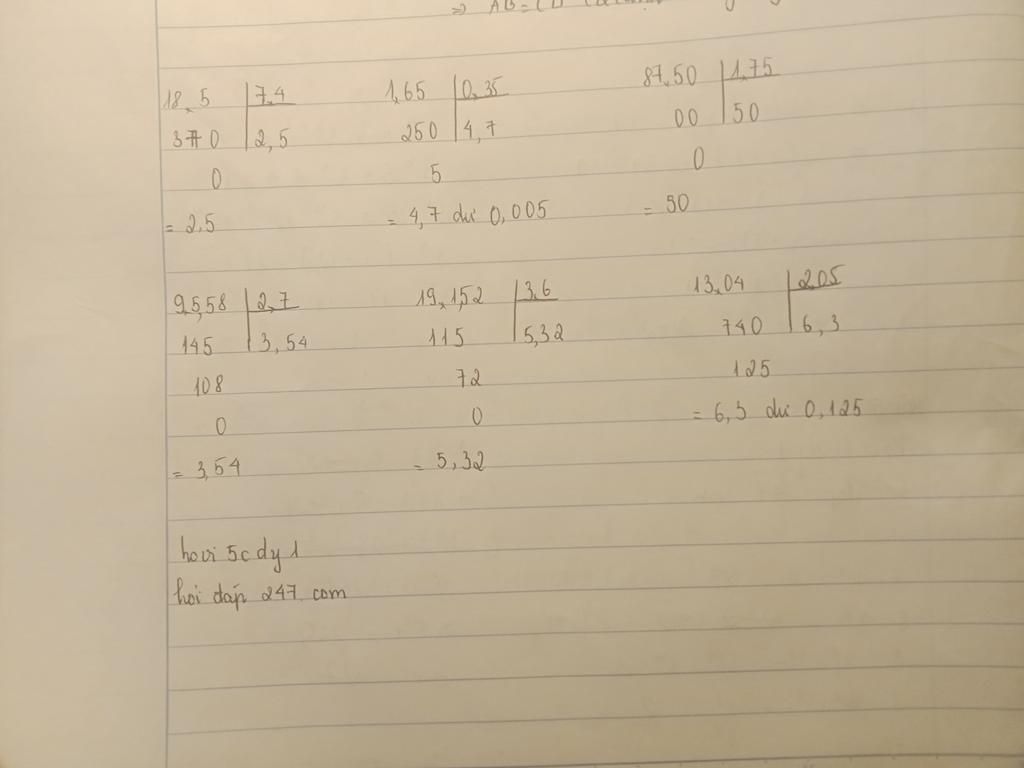 ⇒ AB = CD
18,5 7,4
370 2,5
0
= 2,5
1,65 0,35
250 4,7
5
= 4,7 dư 0,005
87,50 1,75
00 50
0
= 50
95,58 2,7
145 3,54
108
0
= 3,54
19,152 3,6
115 5,32
72
0
= 5,32
13,04 2,05
740 6,3
125
= 6,3 dư 0,125
hovi 5c dy 1
hỏi đáp 247 com